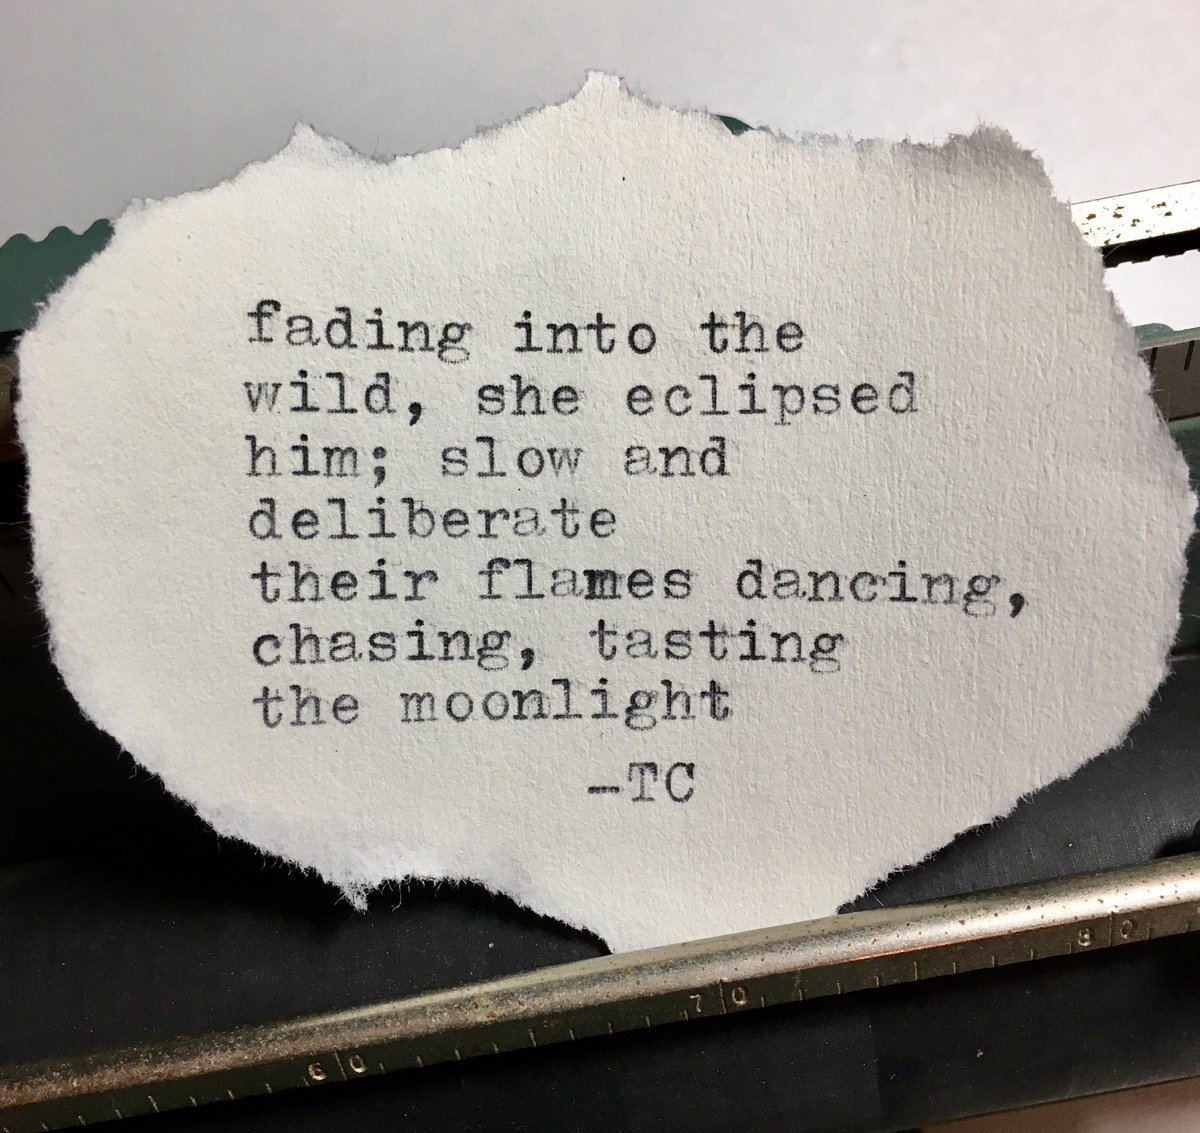 fading into the
wild, she eclipsed
him; slow and
deliberate
their flames dancing,
chasing, tasting
the moonlight
-TC
60
70
80